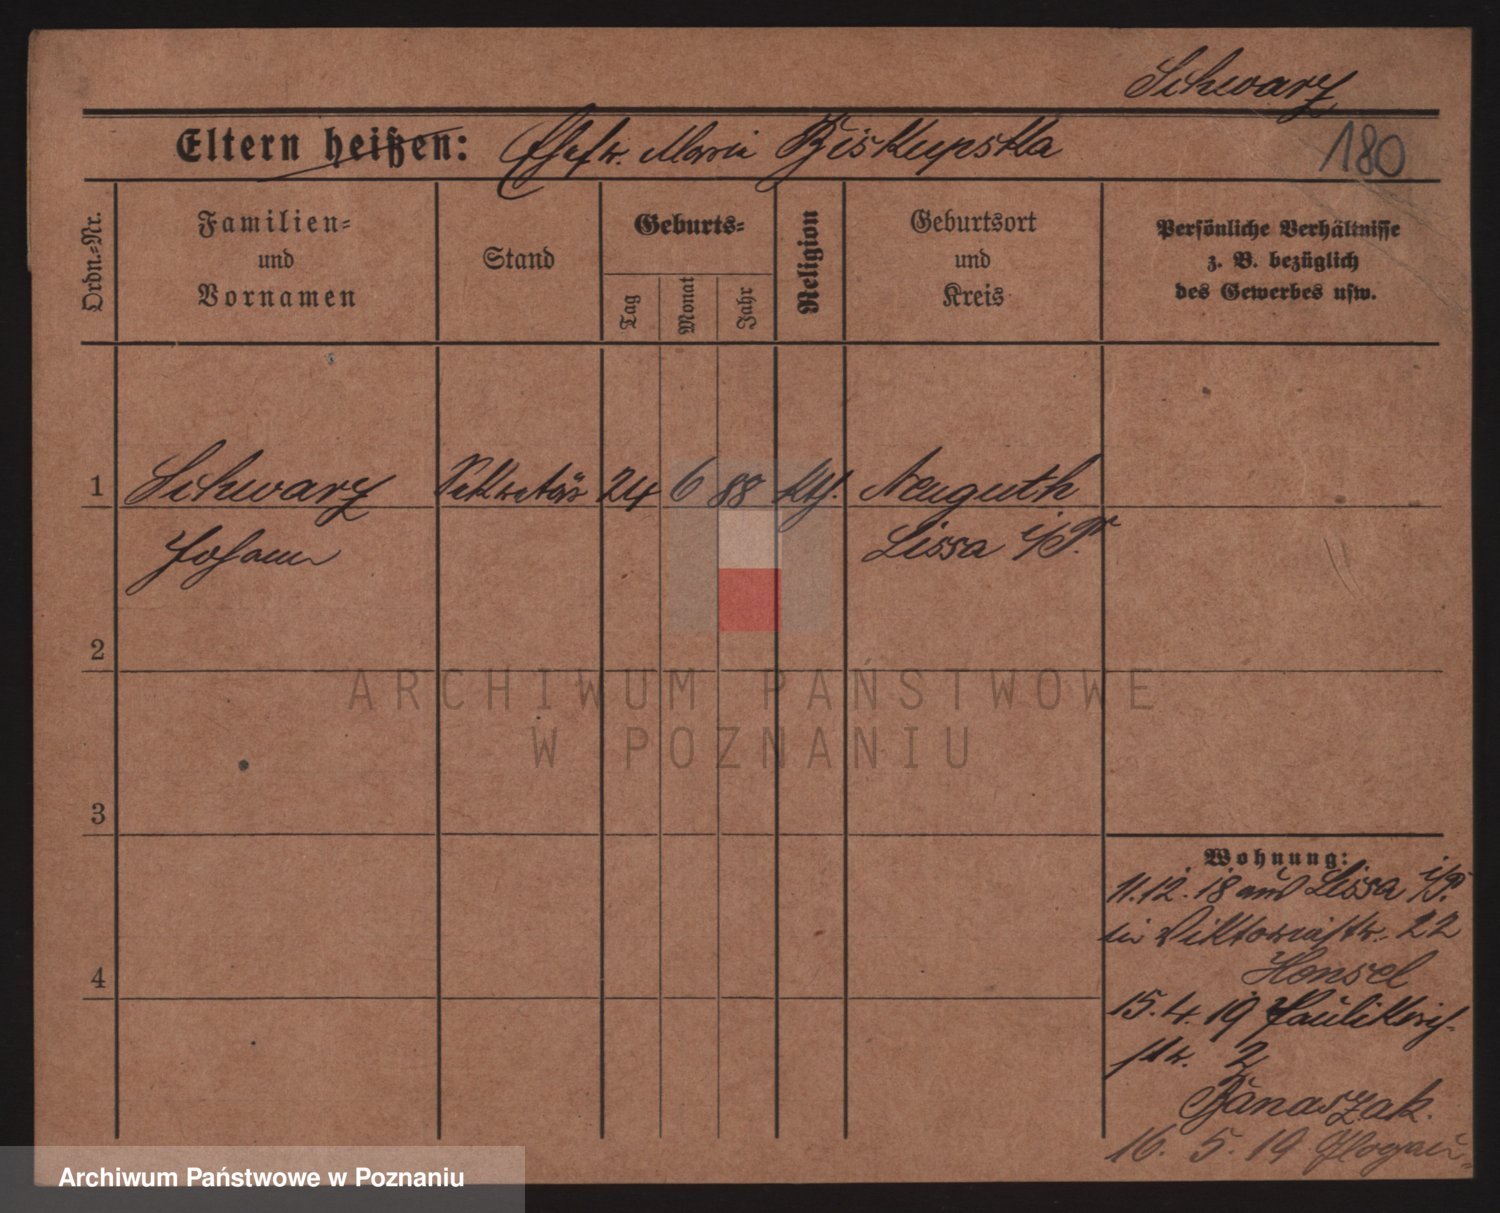 Schwarz
Eltern heißen: Ehefr. Maria Biskupska
180
Ordn.=Nr.
Familien=
und
Vornamen
Stand
Geburts=
Tag
Monat
Jahr
Religion
Geburtsort
und
Kreis
Persönliche Verhältnisse
z. B. bezüglich
des Gewerbes usw.
1 Schwarz Sekretär 24 6 88 kth. Neuguth
Johann Lissa i/P.
2
3
4
Wohnung:
11.12.18 aus Lissa i/P.
in Viktoriastr. 22
Hensel
15.4.19 Paulikirch-
str. 2
Banaszak.
16. 5. 19 Glogau
ARCHIWUM PAŃSTWOWE
W POZNANIU
Archiwum Państwowe w Poznaniu